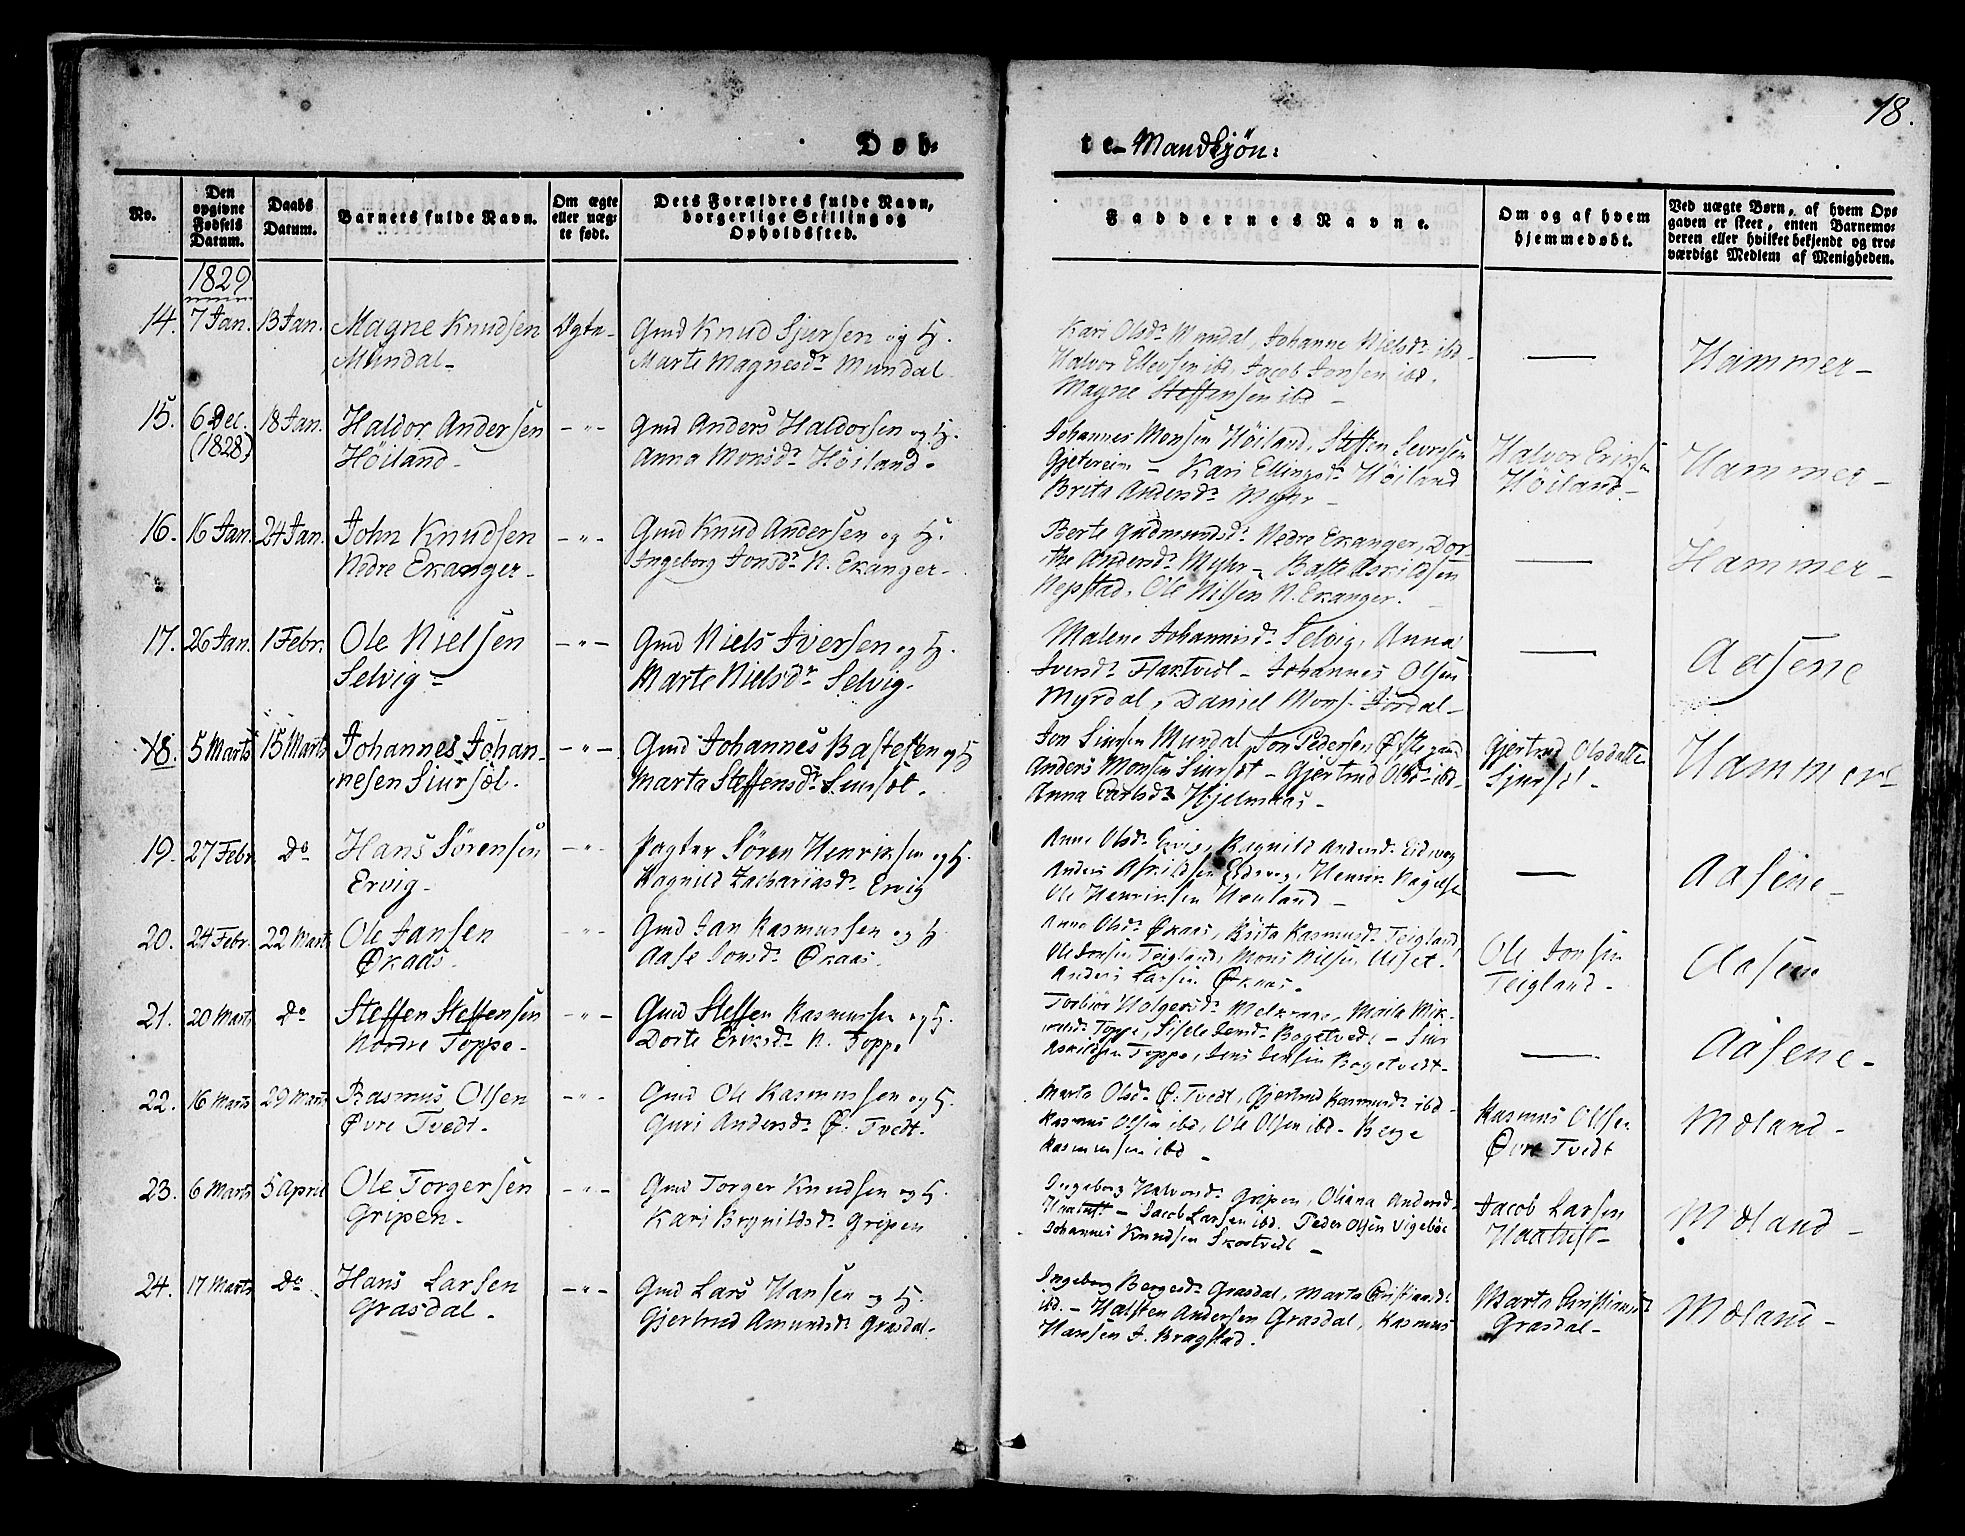 18.
Døb-
te - Mandkjøn:
No.
Den opgivne Fødsels Datum.
Daabs Datum.
Barnets fulde Navn.
Om ægte eller uæg-te født.
Dets Forældres fulde Navn, borgerlige Stilling og Opholdssted.
Faddernes Navne.
Om og af hvem hjemmedøbt.
Ved uægte Børn, af hvem Op-gaven er skeet, enten Barnemo-deren eller hvilket bekjendt og tro-værdigt Medlem af Menigheden.
1829
14. 7 Jan. 13 Jan. Magne Knudsen Ægte- Gmd Knud Sjursen og H.
Mundal- Marte Magnesdr Mundal
Kari Olsdr Mundal, Johanne Nielsdr ibd-
Halvor Ellevsen ibd, Jacob Jonsen ibd.
Magne Steffensen ibd -
— Hammer -
15. 6 Dec. 18 Jan. Haldor Andersen -"- Gmd Anders Haldorsen og H.
(1828) Höiland- Anna Monsdr Höiland.
Johannes Monsen Höiland, Steffen Sevresen
Gjetereim - Kari Ellingsdr Höiland
Brita Andersdr Myhr -
Halvor Eriksen
Höiland.-
Hammer -
16. 16 Jan. 24 Jan. John Knudsen -"- Gmd Knud Andersen og H.
Nedre Ekanger- Ingeborg Jonsdr N. Ekanger-
Berte Gudmundsdr Nedre Ekanger, Dor-
the Andersdr Myhr - Baste Askildsen
Nepstad, Ole Nilsen N. Ekanger.
— Hammer -
17. 26 Jan. 1 Febr. Ole Nielsen -"- Gmd Niels Iversen og H.
Selvig- Marte Nielsdr Selvig.
Malene Johannisdr Selvig, Anna
Iversdr Haktvedt - Johannes Olsen
Myrdal, Daniel Mons. Jordal-
— Aasene
18. 5 Marts 15 Marts Johannes Johan- -"- Gmd Johannes Bastesen og H
nesen Siursöt. Marta Steffensdr Siursöt.
Jon Siursen Mundal, Jon Pedersen Østegaard
Anders Monsen Siursöt - Gjertrud Olsdr ibd-
Anna Carlsdr Hjelmaas -
Gjertrud Olsdatter
Sjursöt -
Hammer
19. 27 Febr. Do Hans Sørensen -"- Pagter Søren Henriksen og H.
Ervig- Ragnild Zachariasdr Ervig
Anne Olsdr Ervig, Ragnild Andersdr Eidsvog
Anders Askildsen Eidsvog, Henrik
Ole Henriksen Houland -
— Aasene-
20. 24 Febr. 22 Marts Ole Jansen -"- Gmd Jan Rasmussen og H
Økaas. Aase Jonsdr Økaas.
Anne Olsdr Økaas, Brita Rasmusdr Teigland
Ole Jonsen Teigland, Mons Nilsen Ulset.
Anders Larsen Økaas.
Ole Jonsen
Teigland-
Aasene
21. 20 Marts Do Steffen Steffensen -"- Gmd Steffen Rasmussen og H.
Nordre Toppe- Dorte Eriksdr N. Toppe
Torbiör Holgersdr
Toppe, Sisele Jensdr Bogetvedt - Siur
Askildsen Toppe, Jens Jensen Bogetvedt-
— Aasene-
22. 16 Marts 29 Marts Rasmus Olsen -"- Gmd Ole Rasmussen og H.
Øvre Tvedt- Guri Andersdr Ø. Tvedt-
Marta Olsdr Ø. Tvedt, Gjertrud Rasmusdr ibd-
Rasmus Olsen ibd, Ole Olsen ibd- Berge
Rasmussen ibd -
Rasmus Olsen
Øvre Tvedt
Mæland-
23. 6 Marts 5 April Ole Torgersen -"- Gmd Torger Knudsen og H.
Gripen- Kari Brynildsdr Gripen
Ingeborg Halvorsdr Gripen, Oliana Andersdr
- Jacob Larsen ibd. Peder Olsen Vigeböe
Johannes Knudsen -
Jacob Larsen
Mæland-
24. 17 Marts Do. Hans Larsen -"- Gmd Lars Hansen og H.
Grasdal- Gjertrud Amundsdr Grasdal-
Ingeborg Bergesdr Grasdal, Marta Christiansdr
ibd. - Halsten Andersen Grasdal, Rasmus
Hansen I. Bragstad.
Marta Christiansdr
Grasdal-
Mæland-